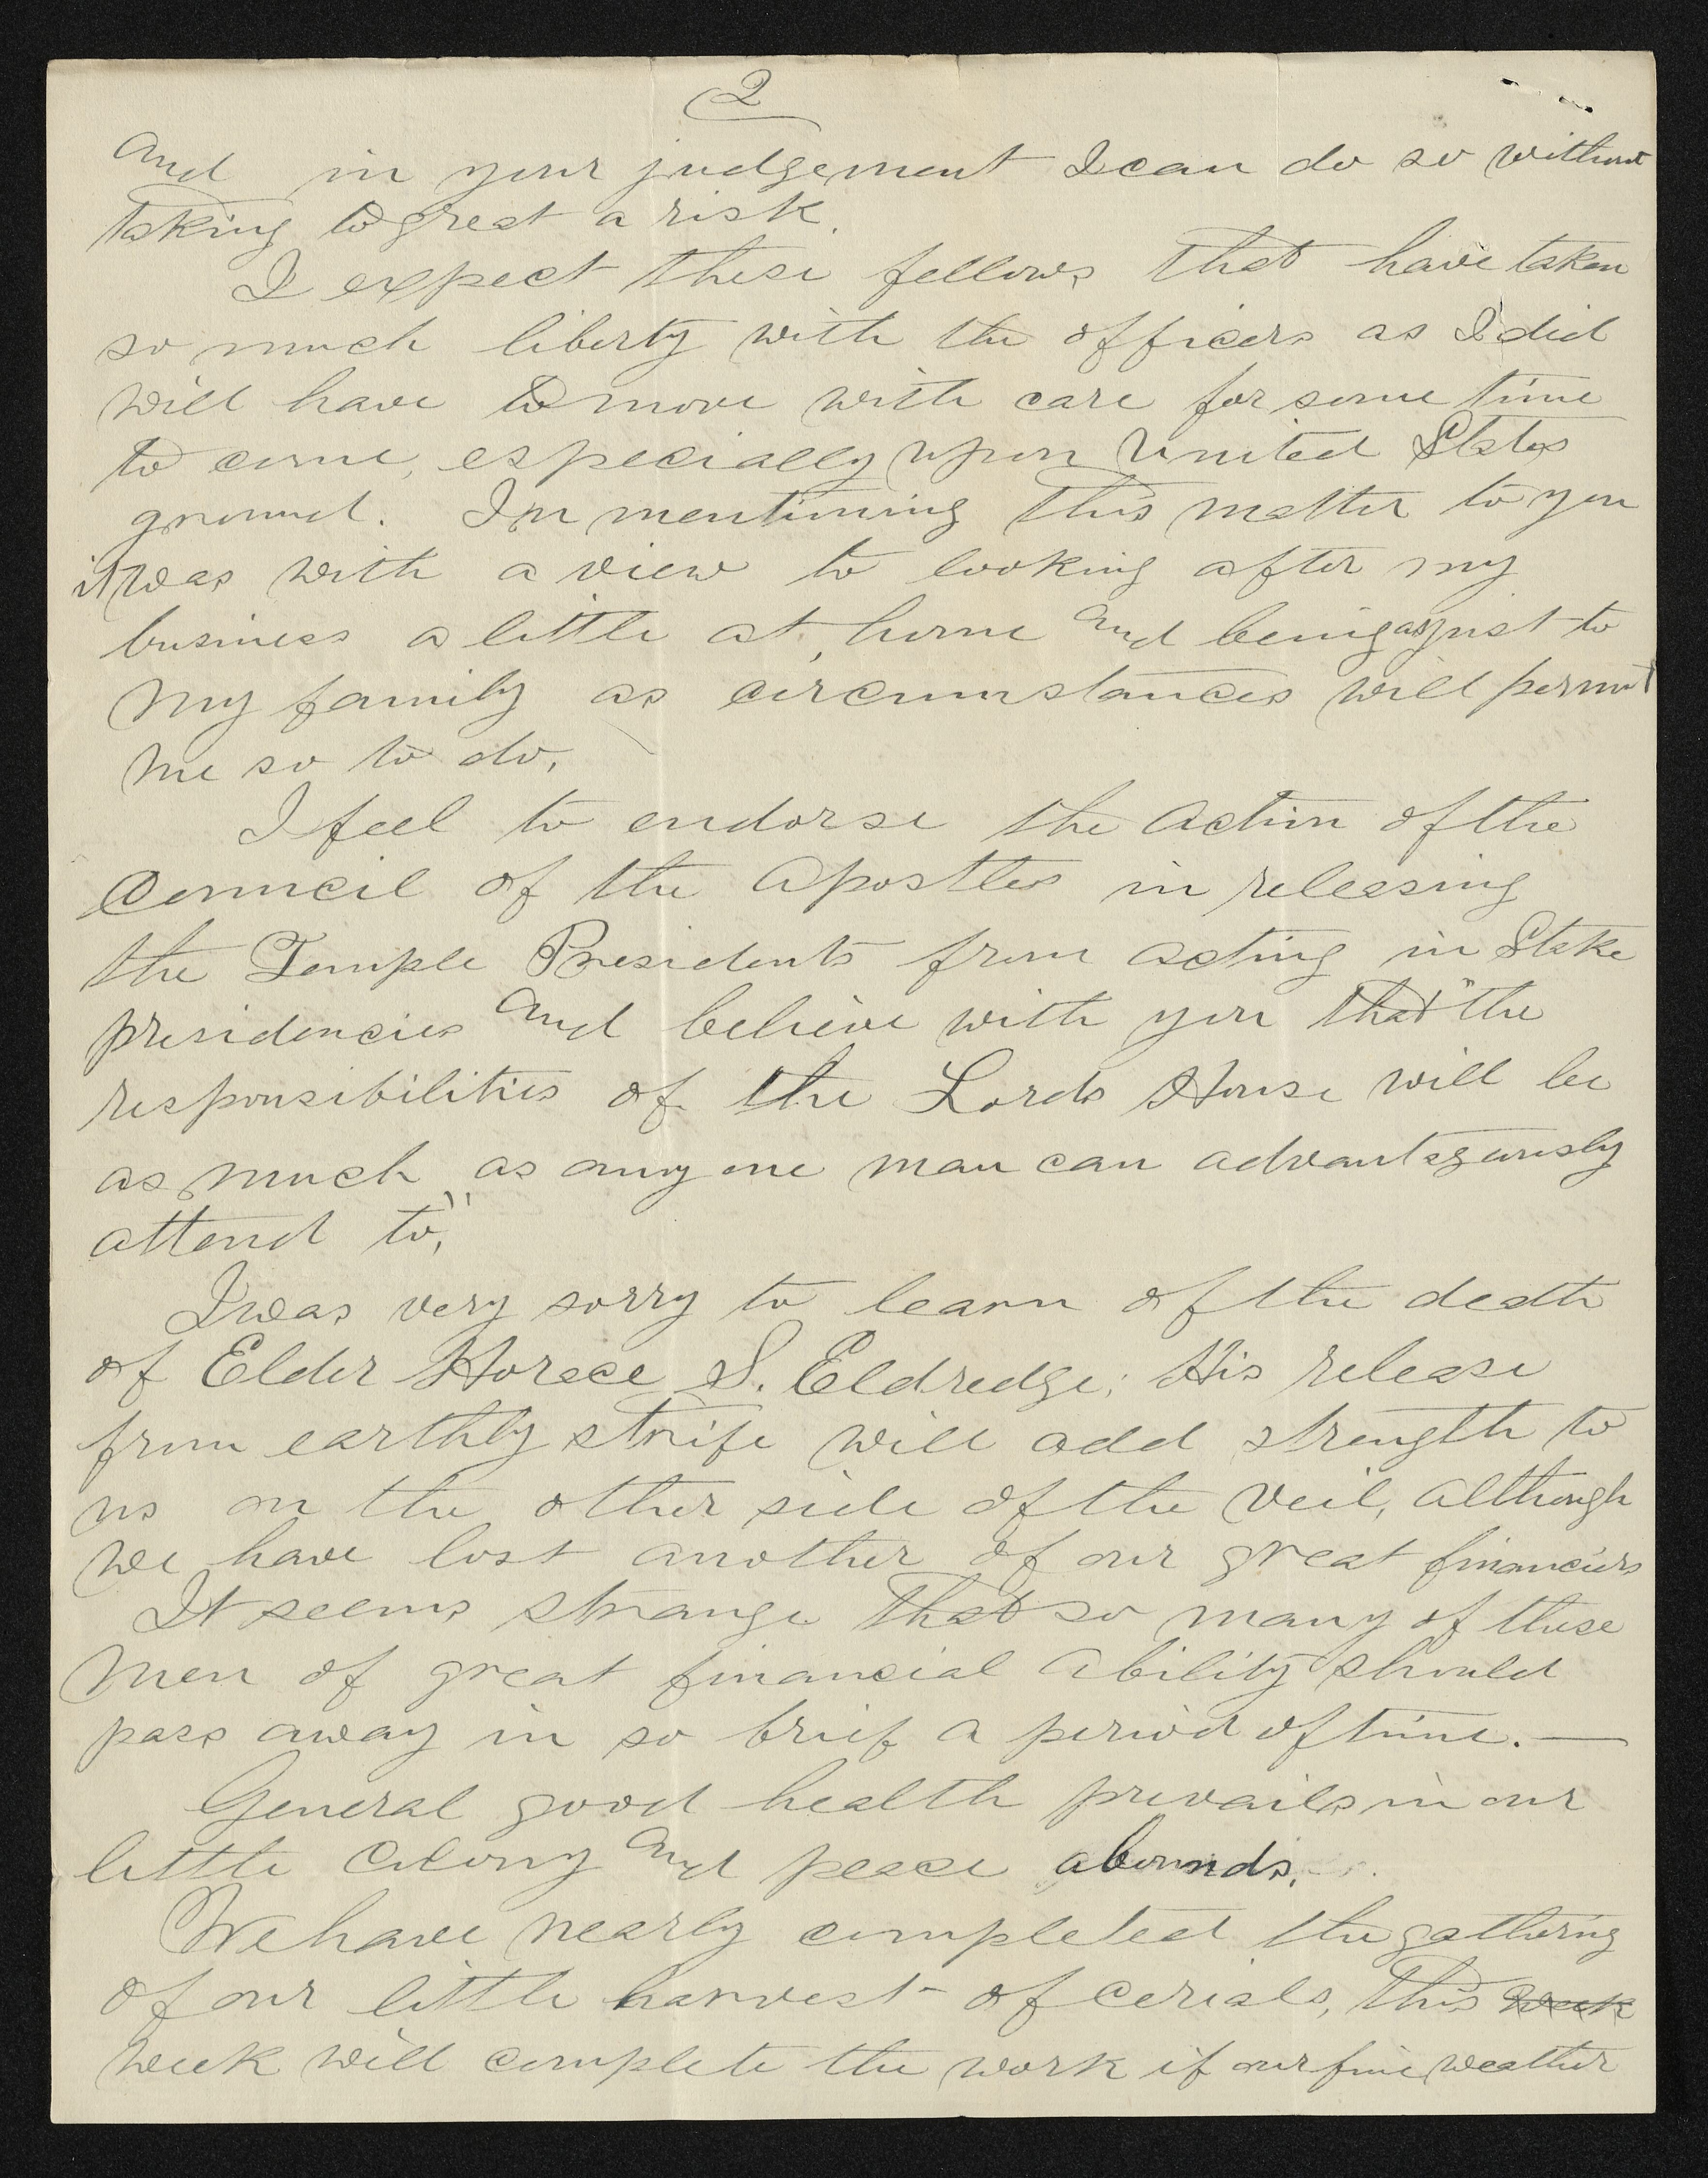 2
and in your judgement I can do so without
taking to great a risk.
I expect these fellows that have taken
so much liberty with the officers as I did
will have to move with care for some time
to come, especially upon United States
ground. In mentioning this matter to you
it was with a view to looking after my
business a little at home and being as just to
my family as circumstances will permit
me so to do.
I feel to endorse the action of the
Council of the Apostles in releasing
the Temple Presidents from acting in Stake
presidencies and believe with you that "the
responsibilities of the Lords House will be
as much as any one man can advantageously
attend to."
I was very sorry to learn of the death
of Elder Horace S. Eldredge; His release
from earthly strife will add strength to
us on the other side of the Veil, although
we have lost another of our great financiers
It seems strange that so many of these
men of great financial ability should
pass away in so brief a period of time. —
General good health prevails in our
little Colony and peace abounds.
We have nearly completed the gathering
of our little harvest of cerials, this week
week will complete the work if our fine weather